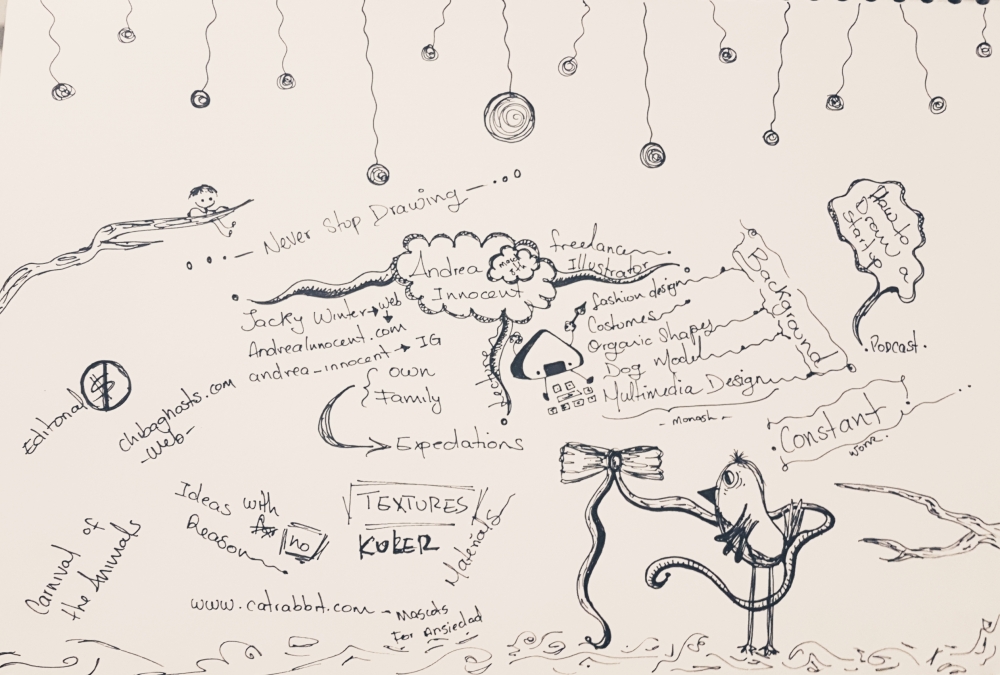 Never Stop Drawing
Andrea
Innocent
freelance
Illustrator
How to
Draw a
Start Up
Podcast.
Background
fashion design
Costumes
Organic Shapes
Dog Model
Multimedia Design
- monash -
Jacky Winter → web
AndreaInnocent.com
andrea_innocent → IG
own
Family
Expectations
Lecture
Editorial
$
chibaghosts.com
-web-
Constant
work.
Ideas with
Reason
no
TEXTURES
KUKER
Materials
Carnival of
the Animals
www.catrabbit.com - Mascots
For Ansiedad